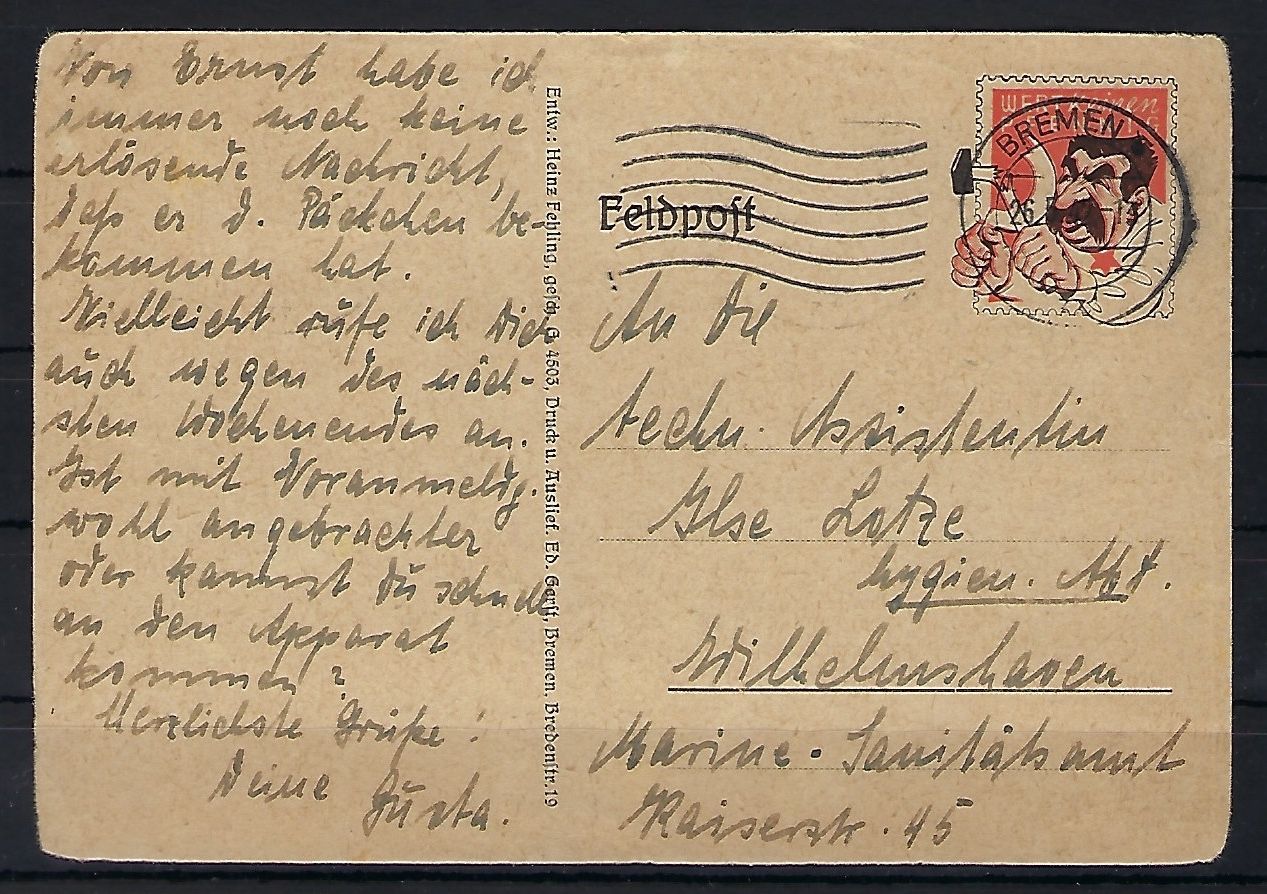 Von Ernst habe ich
immer noch keine
erlösende Nachricht,
daß er d. Päckchen be-
kommen hat.
Vielleicht rufe ich Dich
auch wegen des näch-
sten Wochenendes an.
Ist mit Voranmeldg.
wohl angebrachter
oder kannst Du schnell
an den Apparat
kommen?
Herzlichste Grüße!
Deine
Gusta.
Entw.: Heinz Fehling, gesch. G. 4503, Druck u. Auslief. Ed. Gerst, Bremen, Bredenstr. 19
Feldpost
WERT keinen
BREMEN
26.
An die
techn. Assistentin
Ilse Lotze
hygien. Abt.
Wilhelmshaven
Marine-Sanitätsamt
Kaiserstr. 45